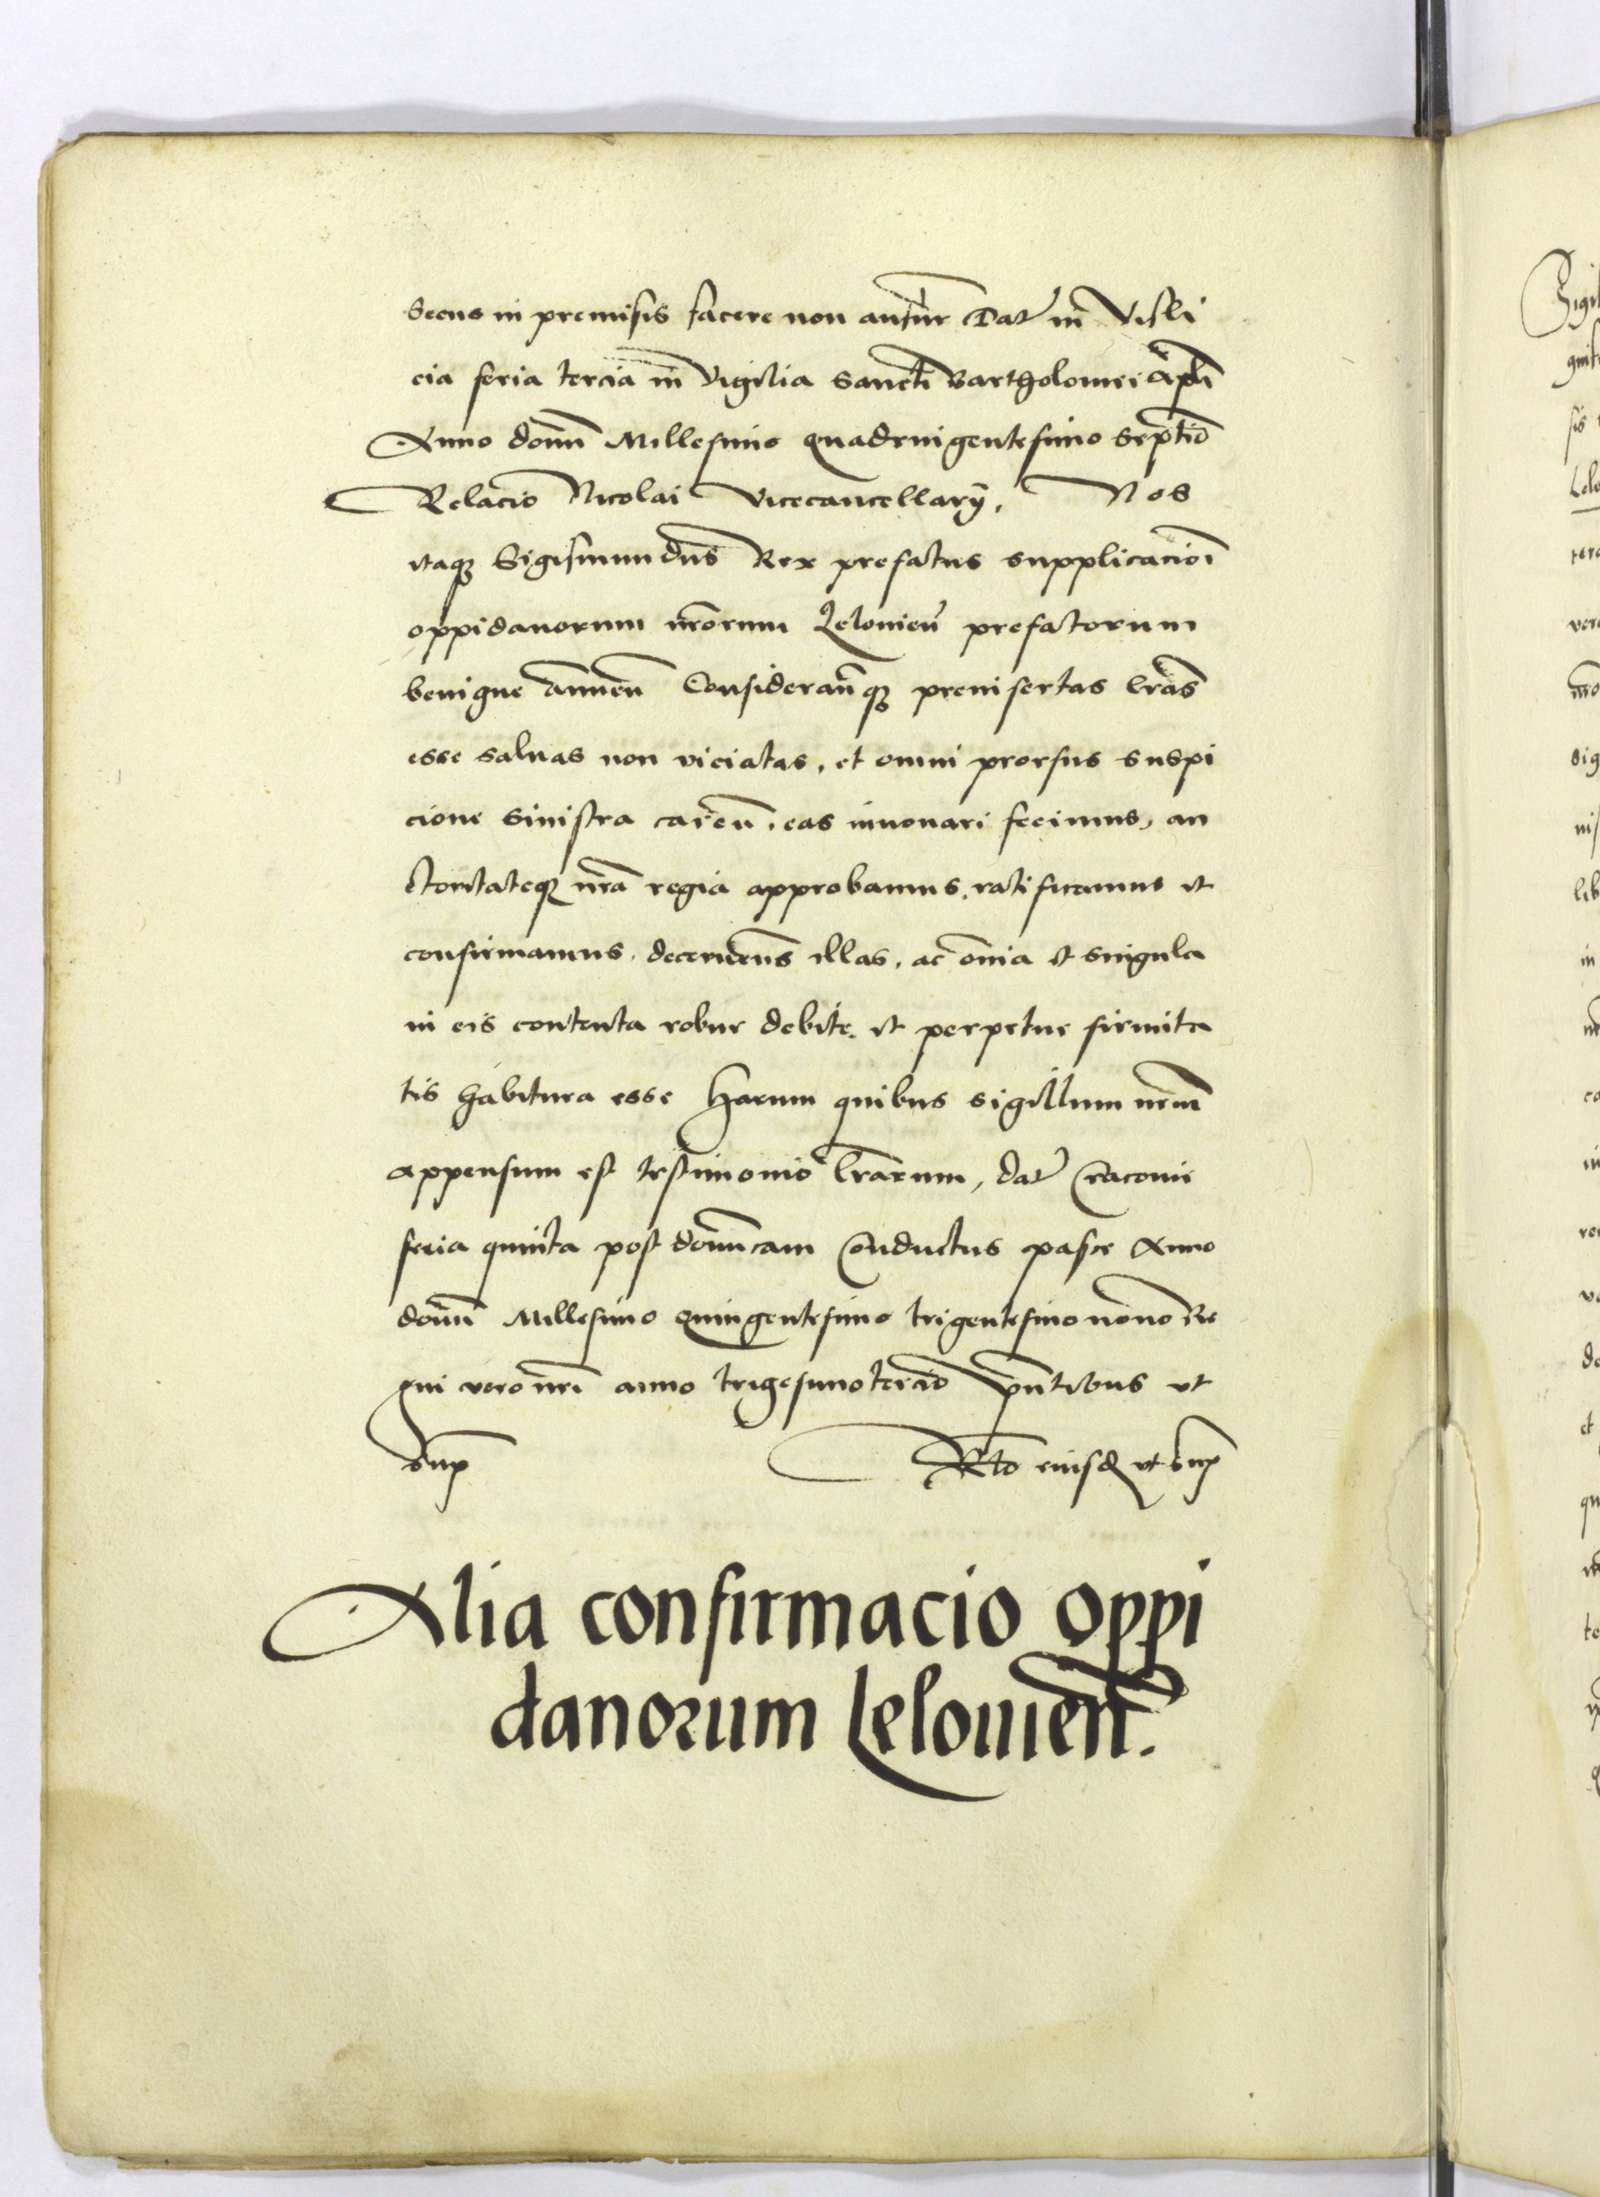 secus in premisis facere non ausur Dat in Visli
cia feria tercia in Vigilia Sancti Bartholomei Apli
Anno domi Millesimo quadringentesimo septio
Relacio Nicolai Vicecancellarij. Nos
itaq Sigismundus Rex prefatus supplicacioi
oppidanorum nrorum Lelovien prefatorum
benigne annuen Consideranq preinsertas lras
esse salvas non viciatas, et omni prorsus suspi
cione sinistra caren, eas innovari fecimus, au
ctoritateq nra regia approbamus, ratificamus et
confirmamus, decernens illas, ac omia et singula
in eis contenta robur debite et perpetue firmita
tis habitura esse Harum quibus sigillum nrum
appensum est testimonio lrarum, dat Cracovie
feria quinta post domicam Conductus pasce Anno
domi Millesimo quingentesimo trigentesimo nono Re
gni vero nri anno trigesimotercio pntibus ut
sup Rto eiusd ut sup
Alia confirmacio oppi
danorum Lelovien.